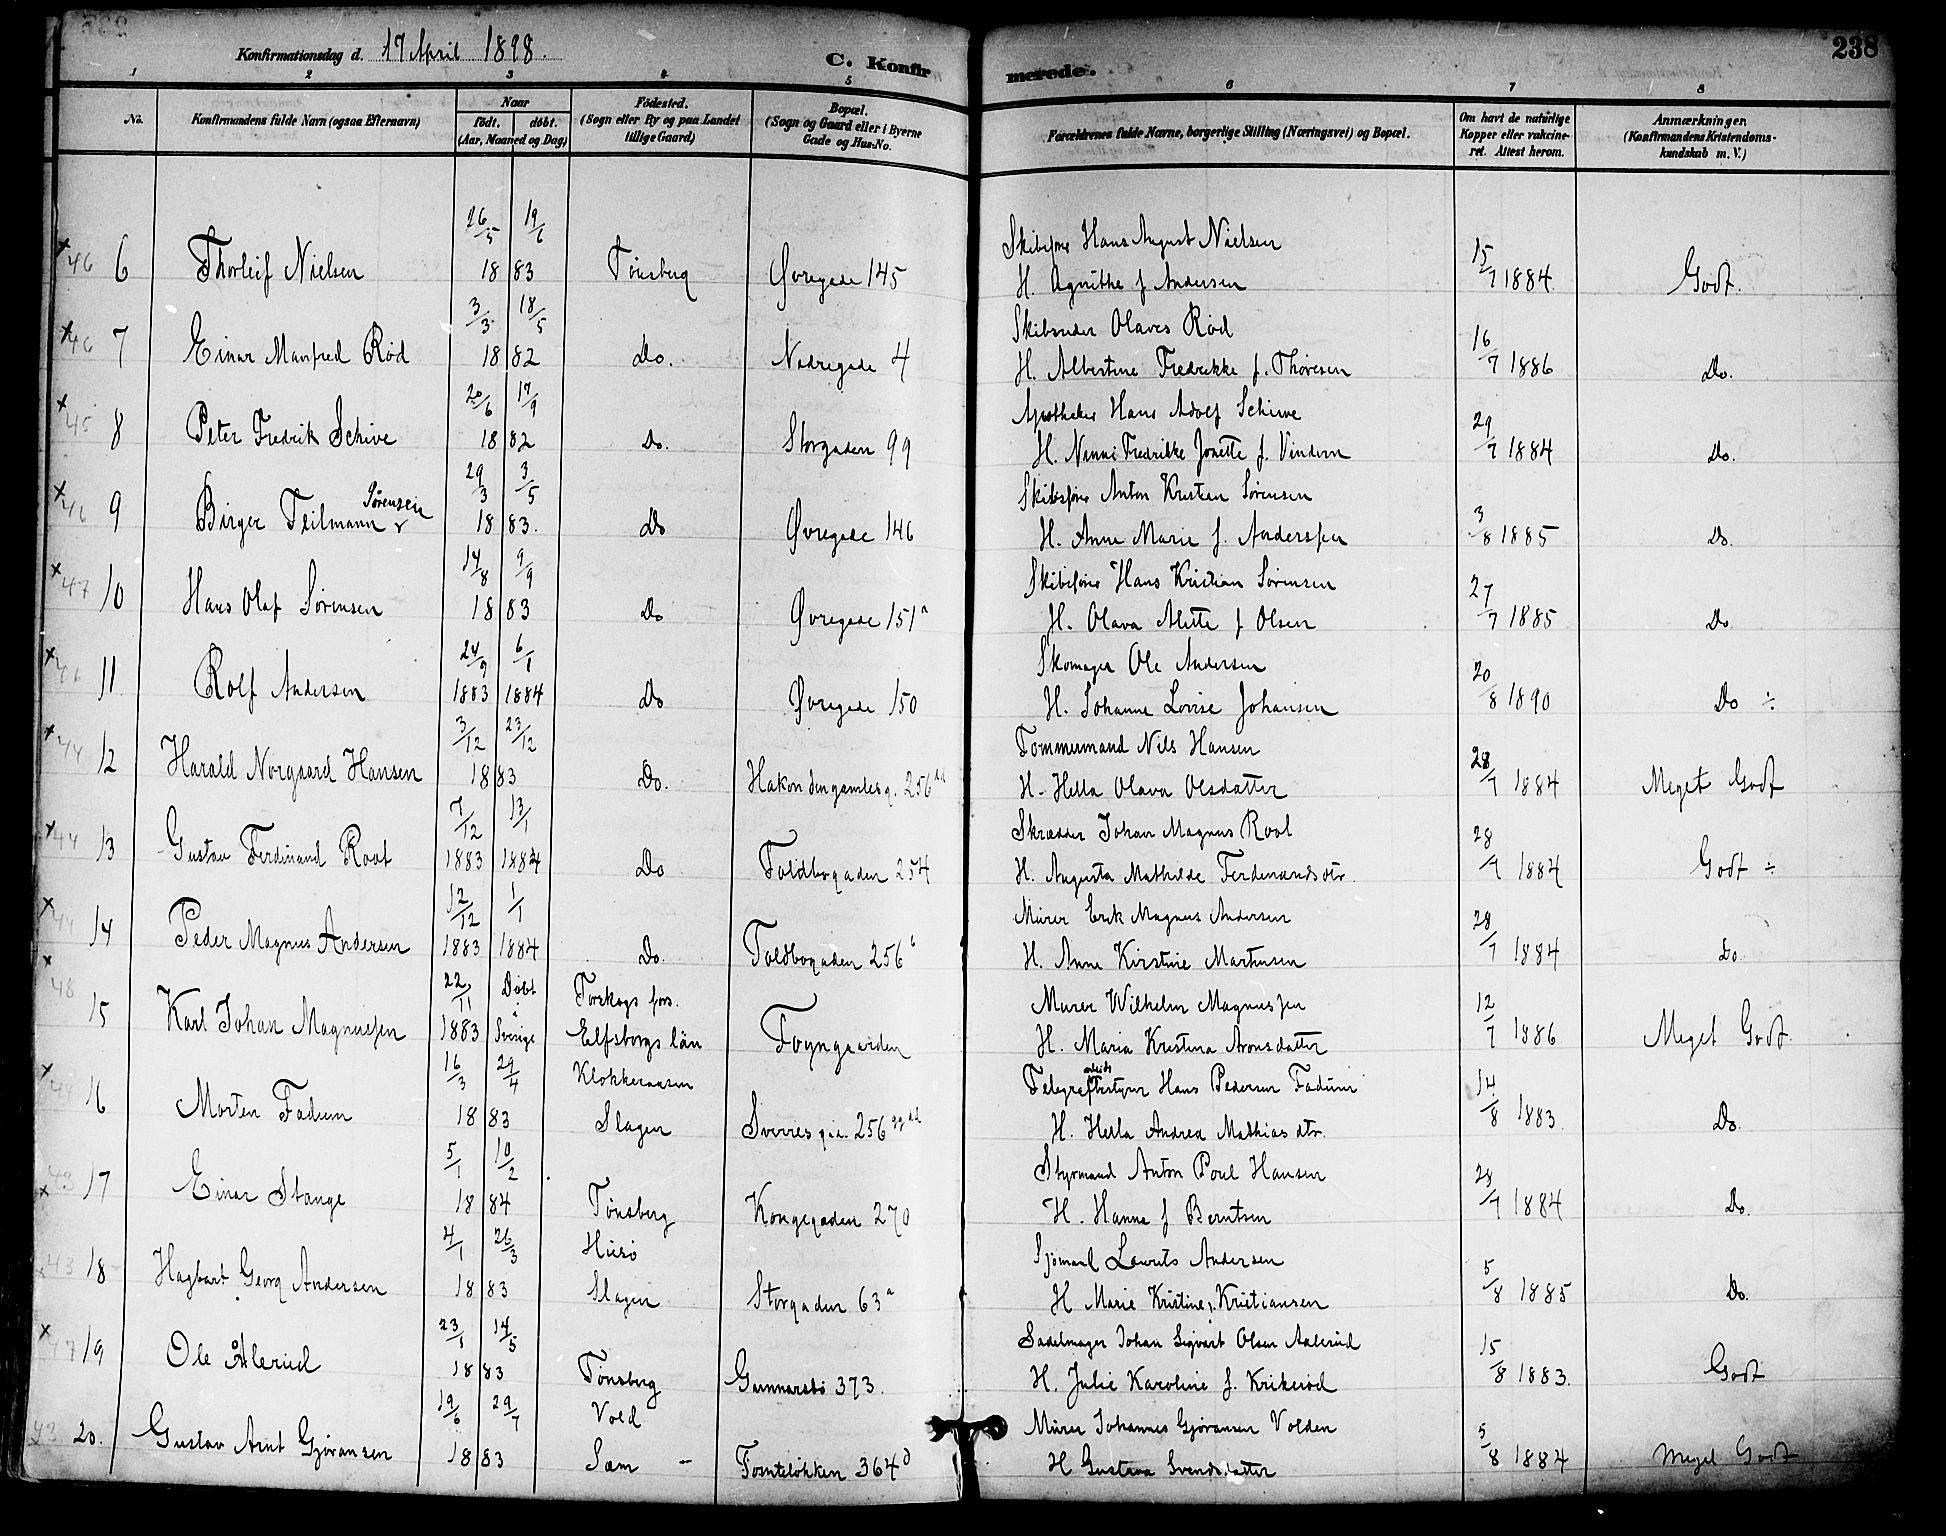 Konfirmationsdag d. 17 April 1898.
C. Konfirmerede.
238
1 2 3 4 5 6 7 8
No.
Konfirmandens fulde Navn (ogsaa Efternavn)
Naar
født. døbt.
(Aar, Maaned og Dag)
Fødested.
(Sogn eller By og paa Landet
tillige Gaard)
Bopæl.
(Sogn og Gaard eller i Byerne
Gade og Hus-No.
Forældrenes fulde Navne, borgerlige Stilling (Næringsvei) og Bopæl.
Om havt de naturlige
Kopper eller vakcine-
ret. Attest herom.
Anmærkninger.
(Konfirmandens Kristendoms-
kundskab m. V.)
26/5 19/6 Skibsfører Hans August Nielsen
x 46 6 Thorleif Nielsen 18 83 Tønsberg Øvregade 145 H. Agnithe f Andersen 15/7 1884 Godt.
3/3 18/5 Skibsreder Olaves Rød
x 46 7 Einar Manfred Rød 18 82 Do. Nedregade 4 H. Albertine Fredrikke f. Thoresen 16/7 1886 Do.
20/6 17/9 Apotheker Hans Adolf Schiwe
x 45 8 Peter Fredrik Schive 18 82 Do. Storgaden 99 H. Nanni Fredrikke Jonette f. Vindern 29/7 1884 Do.
29/3 3/5 Skibsfører Anton Kristian Sørensen
x 46 9 Birger Teilmann Sørensen 18 83. Do Øvregade 146 H. Anne Marie f. Anderssen 3/8 1885 Do.
14/8 9/9 Skibsfører Hans Kristian Sørensen
x 47 10 Hans Olaf Sørensen 18 83 Do Øvregade 151 a H. Olava Alette f Olsen 27/7 1885 Do
24/9 6/1 Skomager Ole Andersen
x 46 11 Rolf Andersen 1883 1884 Do Øvregade 150 H. Johanne Lovise Johansen 20/8 1890 Do ÷
3/12 23/12 Tømmermand Nils Hansen
x 44 12 Harald Norgaard Hansen 18 83 Do. Hakon den gamles g. 256 dd H. Hella Olava Olsdatter 28/7 1884 Meget Godt
7/12 13/1 Skrædder Johan Magnus Roos
x 44 13 Gustav Ferdinand Roos 1883 1884 Do Toldbogaden 254 H. Augusta Mathilde Ferdinandsdtr. 28/7 1884 Godt ÷
12/12 1/1 Murer Erik Magnus Andersen
x 44 14 Peder Magnus Andersen 1883 1884 Do. Toldbogaden 256 H. Anne Kirstine Martinsen 28/7 1884 Do.
22/11 Døbt Torskogs fors. Murer Wilhelm Magnussen
x 48 15 Karl Johan Magnussen 1883 i Sverige Elfsborgs län Foyngaarden H. Maria Kristina Aronsdatter 12/7 1886 Meget Godt.
16/3 29/4 Klokkeraasen Telegrafarbeidsbestyrer Hans Pedersen Fadum
x 44 16 Morten Fadum 18 83 Slagen Sverresgd. 256 H. Hella Andrea Mathiasdtr. 14/8 1883. Do.
5/1 10/2 Styrmand Anton Poul Hansen
x 43 17 Einar Stange 18 84 Tønsberg Kongegaden 270 H. Hanna f Berntsen 28/7 1884 Do.
4/1 26/3 Husø Sjømand Laurits Andersen
x 43 18 Hagbart Georg Andersen 18 83 Slagen Storgaden 63 a H Marie Kristine f. Kristiansen 5/8 1885 Do.
23/1 14/5 Sadelmager Johan Sigvart Olsen Aalerud
x 47 19 Ole Ålerud 18 83 Tønsberg Gunnarsbø 373. H. Julie Karoline f. Krikerød 15/8 1883. Godt
19/6 29/7 Vold Murer Johannes Gjøransen Volden
43 20. Gustav Arnt Gjøransen 18 83 Sem - Tomteløkken 364 d H Gustava Svendsdatter 5/8 1884 Meget Godt